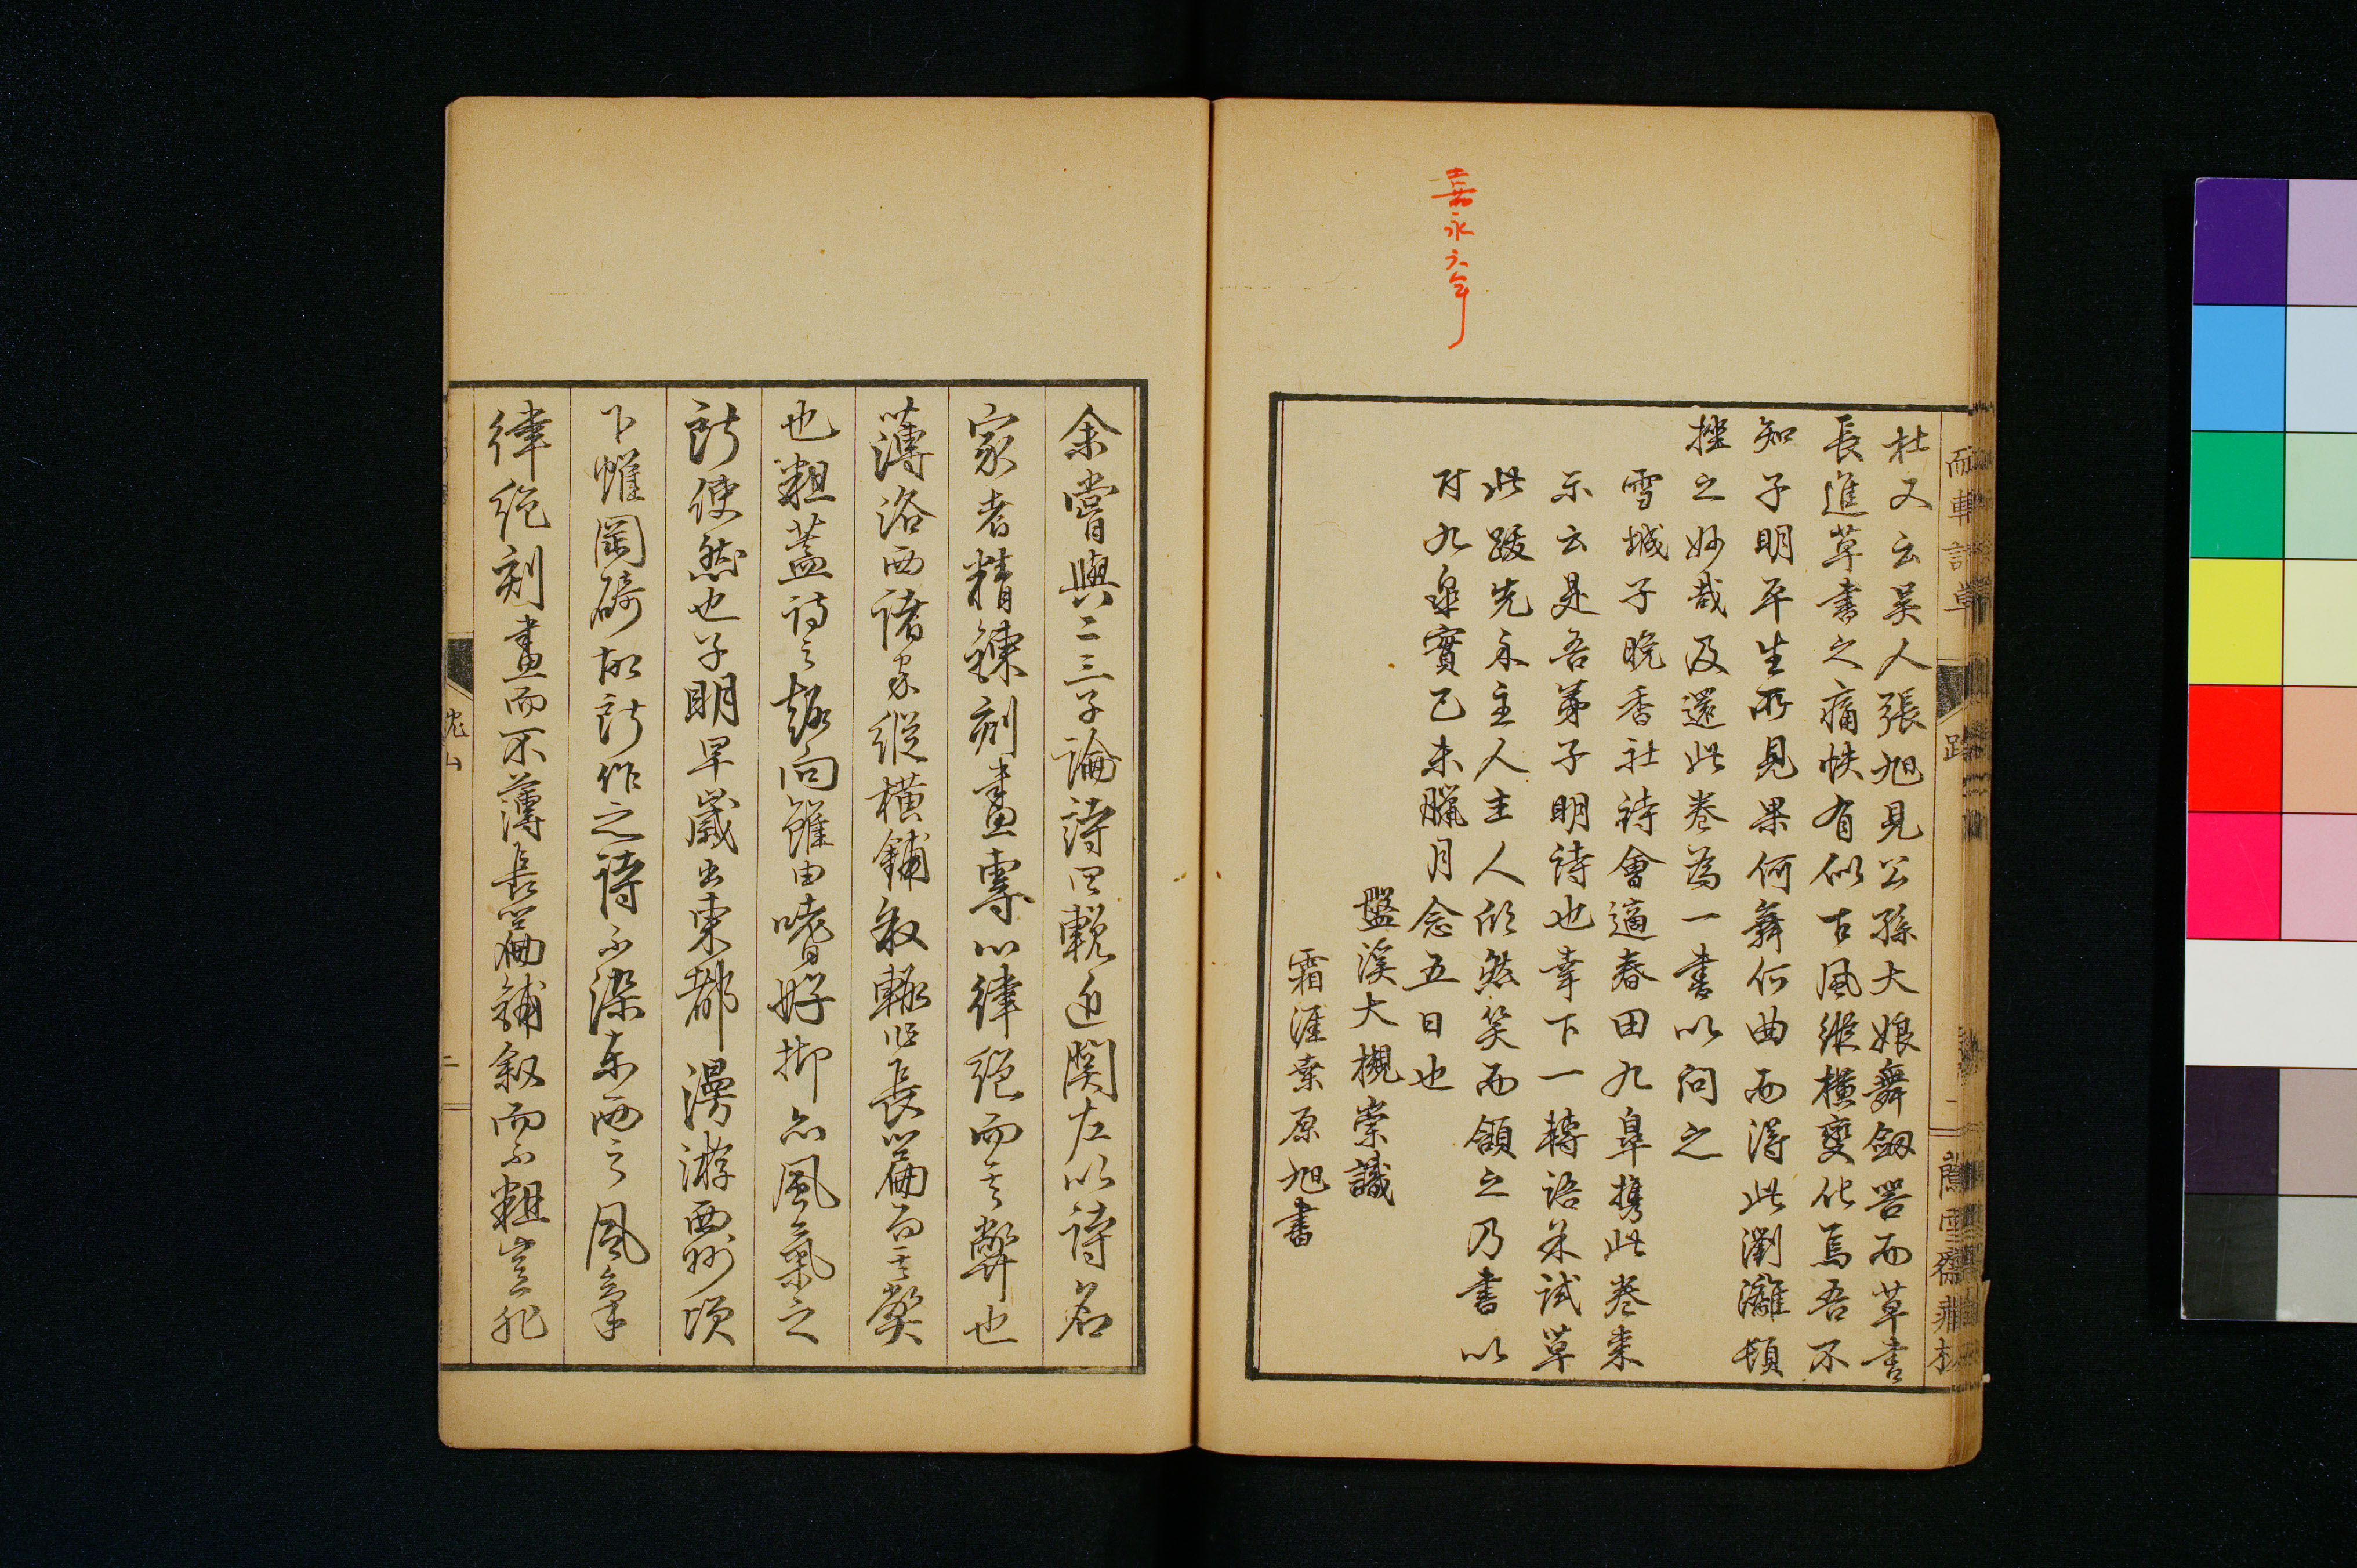 嘉永六年
杜又云吳人張旭見公孫大娘舞劔器而草書
長進草書之痛快有似古風縱橫變化焉吾不
知子明平生所見果何舞何曲而得此瀏灕頓
挫之妙哉及還此卷為一書以問之
雪城子晚香社詩會適春田九皐携此卷來
示云是吾弟子明詩也幸下一轉語余試草
此跋先示主人主人欣然笑而頷之乃書以
付九皐實己未臘月念五日也
盤溪大槻崇識
霜涯桒原旭書
余嘗與二三子論詩曰輓近関左以詩名
家者精鍊刻畫專以律絕而其弊也
薄洛西諸家縱橫鋪叙輙以長篇而其弊
也粗蓋詩之趨向雖由嗜好抑亦風氣之
所使然也子明早歲出東都漫游西州頃
下帷岡崎故所作之詩不染東西之風氣
律絕刻畫而不薄長篇鋪叙而不粗豈非